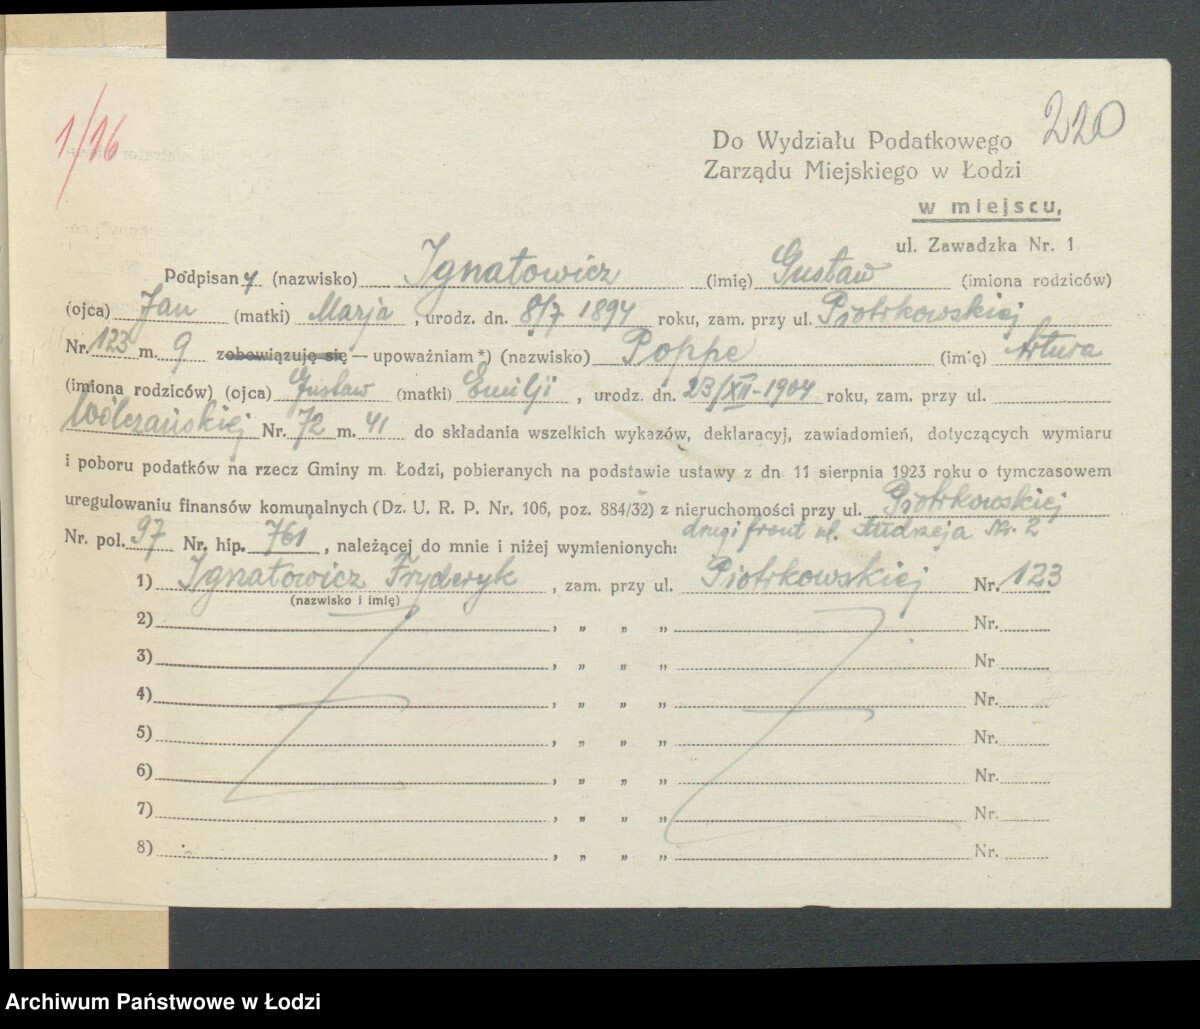 1/16
220
Do Wydziału Podatkowego
Zarządu Miejskiego w Łodzi
w miejscu,
ul. Zawadzka Nr. 1
Podpisany (nazwisko) Ignatowicz (imię) Gustaw (imiona rodziców)
(ojca) Jan (matki) Marja, urodz. dn. 8/7 1894 roku, zam. przy ul. Piotrkowskiej
Nr. 123 m. 9 zobowiązuję się — upoważniam *) (nazwisko) Poppe (imię) Artura
(imiona rodziców) (ojca) Gustaw (matki) Emilji, urodz. dn. 23/XII-1904 roku, zam. przy ul.
Wólczańskiej Nr. 72 m. 41 do składania wszelkich wykazów, deklaracyj, zawiadomień, dotyczących wymiaru
i poboru podatków na rzecz Gminy m. Łodzi, pobieranych na podstawie ustawy z dn. 11 sierpnia 1923 roku o tymczasowem
uregulowaniu finansów komunalnych (Dz. U. R. P. Nr. 106, poz. 884/32) z nieruchomości przy ul. Piotrkowskiej
drugi front ul. Andrzeja Nr. 2
Nr. pol. 97 Nr. hip. 761, należącej do mnie i niżej wymienionych:
1) Ignatowicz Fryderyk, zam. przy ul. Piotrkowskiej Nr. 123
(nazwisko i imię)
2) , „ „ „ Nr.
3) , „ „ „ Nr
4) , „ „ „ Nr.
5) , „ „ „ Nr.
6) , „ „ „ Nr.
7) , „ „ „ Nr.
8) , „ „ „ Nr.
Archiwum Państwowe w Łodzi